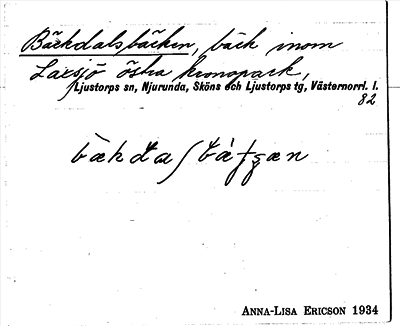 Bäckdalsbäcken, bäck inom
Laxsjö östra kronopark,
Ljustorps sn, Njurunda, Sköns och Ljustorps tg, Västernorrl. l.
82
ANNA-LISA ERICSON 1934